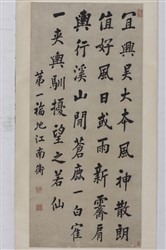 宜興吳大本風神散朗
值好風日或雨新霽肩
輿行溪山間蒼鹿一白隺
一夾輿馴擾望之若仙
第一福地江南衛